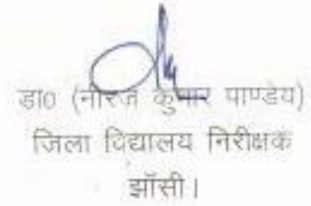 डा० (नीरज कुमार पाण्डेय)
जिला विद्यालय निरीक्षक
झॉसी।